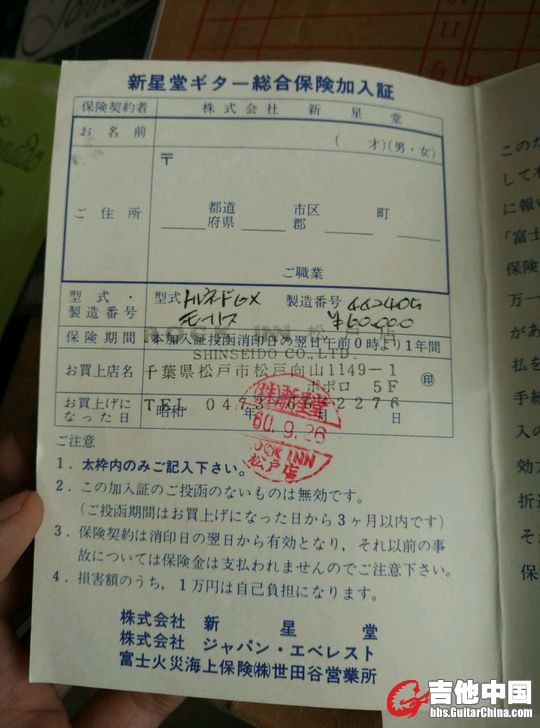 新星堂ギター総合保険加入証
保険契約者 株式会社 新星堂
お名前 ( 才)(男・女)
〒
ご住所 都道府県 市区郡 町
ご職業
型式・製造番号 型式 トルネードGX モーリス 製造番号 442405 ¥60,000
ROCK INN 松戸店
保険期間 本加入証投函消印日の翌日午前0時より1年間
SHINSEIDO CO.,LTD.
お買上店名 千葉県松戸市松戸向山1149-1 ㊞
ポポロ 5F
お買上げになった日 昭和 年 月 日
TEL 0473 2276
㈱新星堂
60.9.26
ROCK INN
松戸店
ご注意
1. 太枠内のみご記入下さい。
2. この加入証のご投函のないものは無効です。
(ご投函期間はお買上げになった日から3ヶ月以内です)
3. 保険契約は消印日の翌日から有効となり，それ以前の事
故については保険金は支払われませんのでご注意下さい。
4. 損害額のうち，1万円は自己負担になります。
株式会社 新星堂
株式会社 ジャパン・エベレスト
富士火災海上保険㈱世田谷営業所
このた
して
に報い
「富士
保険
万一
があ
払を
手続
入の
効力
折返
それ
保
吉他中国
bbs.GuitarChina.com